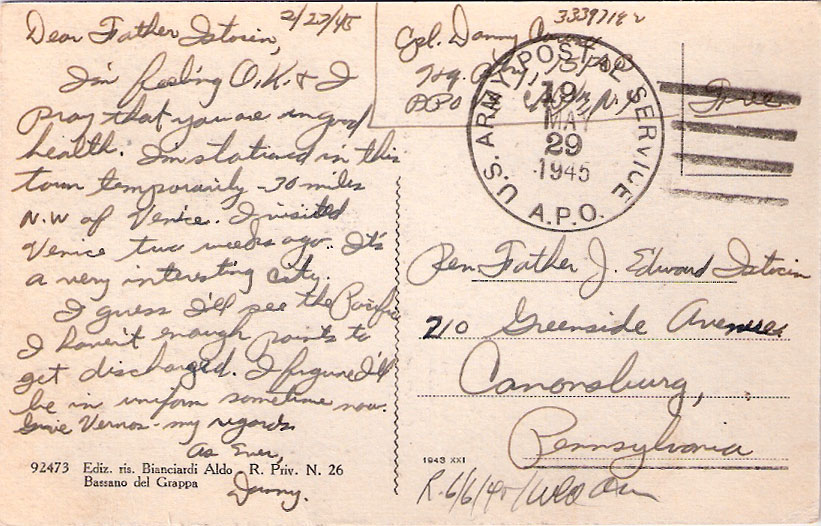 2/27/45
Dear Father Istocin,
I'm feeling O.K. & I
pray that you are in good
health. I'm stationed in this
town temporarily - 30 miles
N.W of Venice. I visited
Venice two weeks ago. It's
a very interesting city.
I guess I'll see the Pacific
I haven't enough points to
get discharged. I figure I'll
be in uniform sometime now.
Give Vernos - my regards
As Ever,
Danny.
92473 Ediz. ris. Bianciardi Aldo - R. Priv. N. 26
Bassano del Grappa
Cpl. Danny
Hq.
APO N.Y.
U.S. ARMY POSTAL SERVICE
19
MAY
29
1945
A.P.O.
Free
Rev. Father J. Edward Istocin
210 Greenside Avenue
Canonsburg,
Pennsylvania
1943 XXI
R. 6/6/45